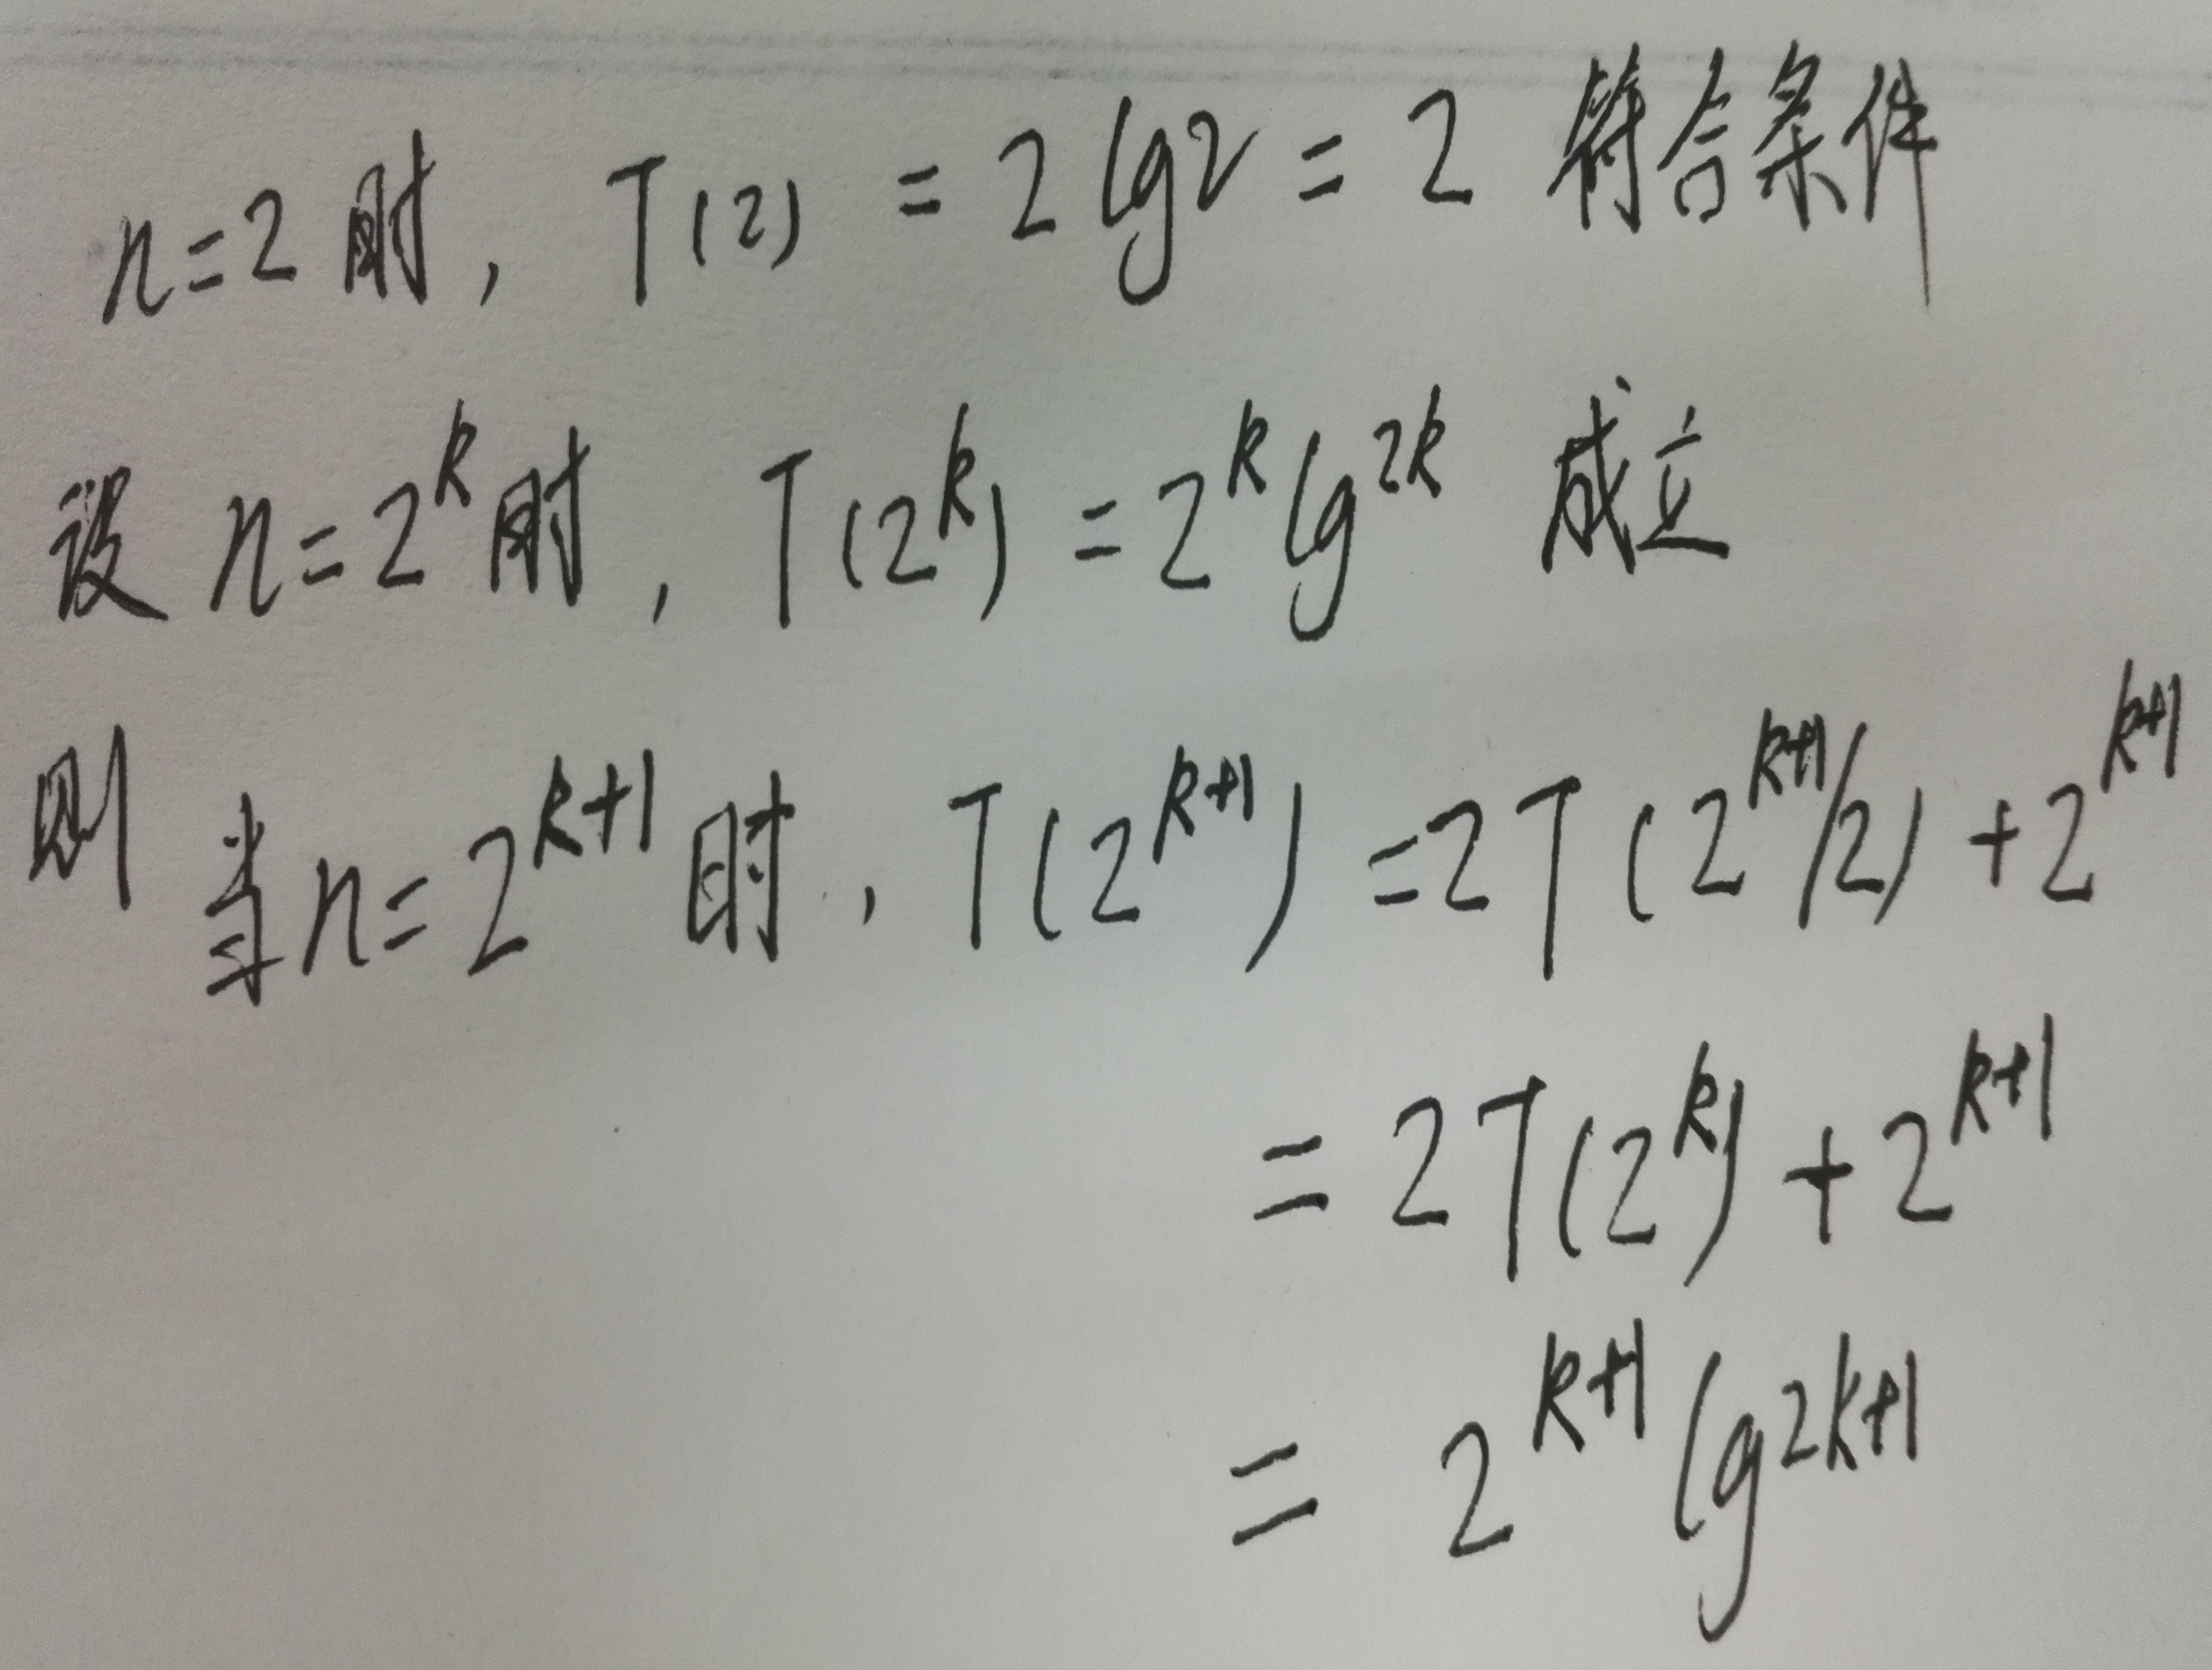 n=2时, T(2) = 2lg2 = 2 符合条件
设 n=2^k时, T(2^k) = 2^k lg^2k 成立
则 当n=2^{k+1}时, T(2^{k+1}) = 2T(2^{k+1}/2) + 2^{k+1}
= 2T(2^k) + 2^{k+1}
= 2^{k+1} lg^{2k+1}